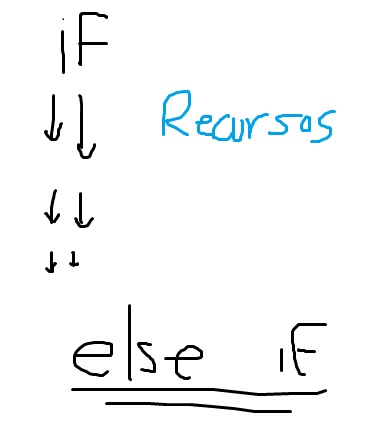 if
Recursos
else if